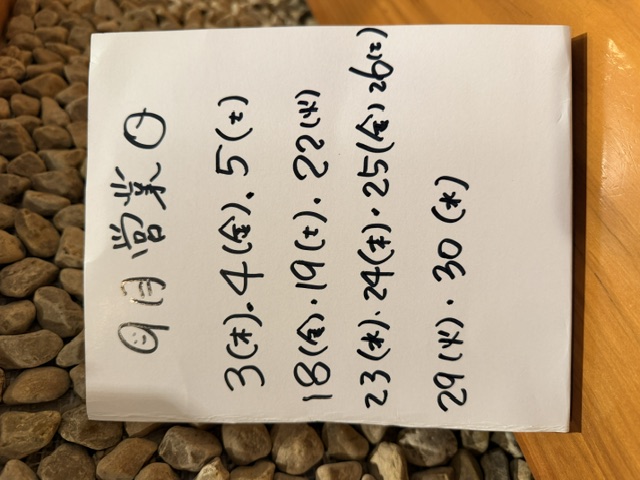 9月営業日
3(木).4(金).5(土)
18(金).19(土).22(火)
23(水).24(木).25(金)26(土)
29(火).30(水)